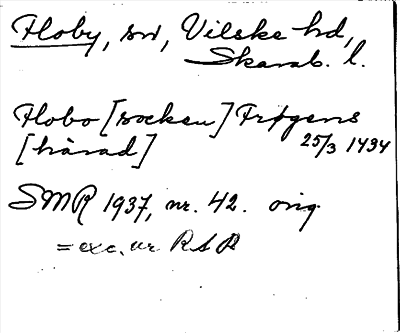 Floby, sn, Vilske hd,
Skarab. l.
Flobo [socken] Frøgens
[härad] 25/3 1494
SMR 1937, nr. 42. orig
= exc. ur RSR